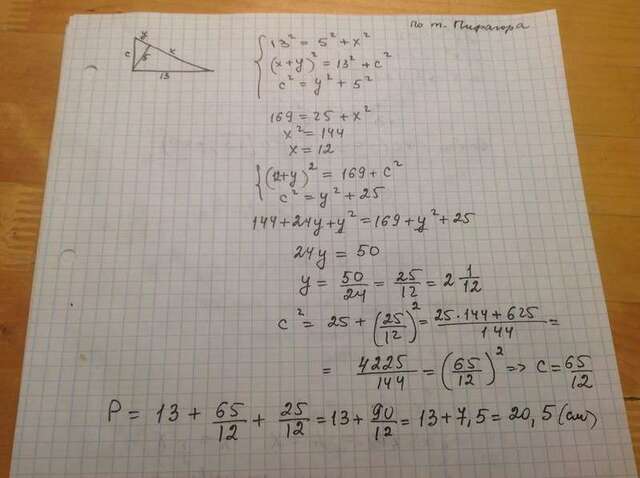 по т. Пифагора
y
x
c
5
13
13² = 5² + x²
(x+y)² = 13² + c²
c² = y² + 5²
169 = 25 + x²
x² = 144
x = 12
(12+y)² = 169 + c²
c² = y² + 25
144 + 24y + y² = 169 + y² + 25
24y = 50
y = 50/24 = 25/12 = 2 1/12
c² = 25 + (25/12)² = 25·144 + 625/144 =
= 4225/144 = (65/12)² => c = 65/12
P = 13 + 65/12 + 25/12 = 13 + 90/12 = 13 + 7,5 = 20,5 (см)